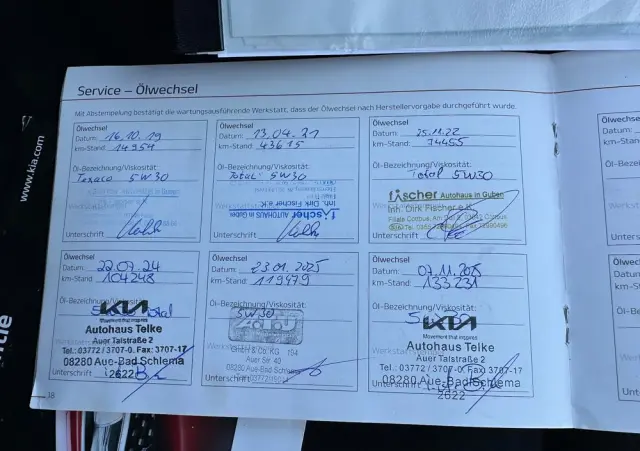 Service – Ölwechsel
Mit Abstempelung bestätigt die wartungsausführende Werkstatt, dass der Ölwechsel nach Herstellervorgabe durchgeführt wurde.
Ölwechsel
Datum: 16.10.19
km-Stand: 14954
Öl-Bezeichnung/Viskosität:
Texaco 5W30
Unterschrift
Ölwechsel
Datum: 13.04.21
km-Stand: 43615
Öl-Bezeichnung/Viskosität:
Total 5W30
Inh. Dirk Fischer e.K.
fischer AUTOHAUS in Guben
Unterschrift
Ölwechsel
Datum: 25.11.22
km-Stand: 74455
Öl-Bezeichnung/Viskosität:
Total 5W30
fischer Autohaus in Guben
Inh. Dirk Fischer e.K.
Unterschrift
Ölwechsel
Datum: 22.07.24
km-Stand: 104248
Öl-Bezeichnung/Viskosität:
KIA
Movement that inspires
Autohaus Telke
Auer Talstraße 2
Tel.: 03772 / 3707-0, Fax: 3707-17
08280 Aue-Bad Schlema
Unterschrift 2622
Ölwechsel
Datum: 23.01.2025
km-Stand: 119479
Öl-Bezeichnung/Viskosität:
5W30
GmbH & Co. KG 194
Auer Str.
08280 Aue-Bad Schlema
Unterschrift
Ölwechsel
Datum: 07.11.2025
km-Stand: 133231
Öl-Bezeichnung/Viskosität:
KIA
Movement that inspires
Autohaus Telke
Auer Talstraße 2
Tel.: 03772 / 3707-0, Fax: 3707-17
08280 Aue-Bad Schlema
Unterschrift
2622
18
www.kia.com
Ölwechsel
Datum:
km-Stand:
Öl-Bezeichnung
Unterschrift
Ölwechsel
Datum:
km-Stand: